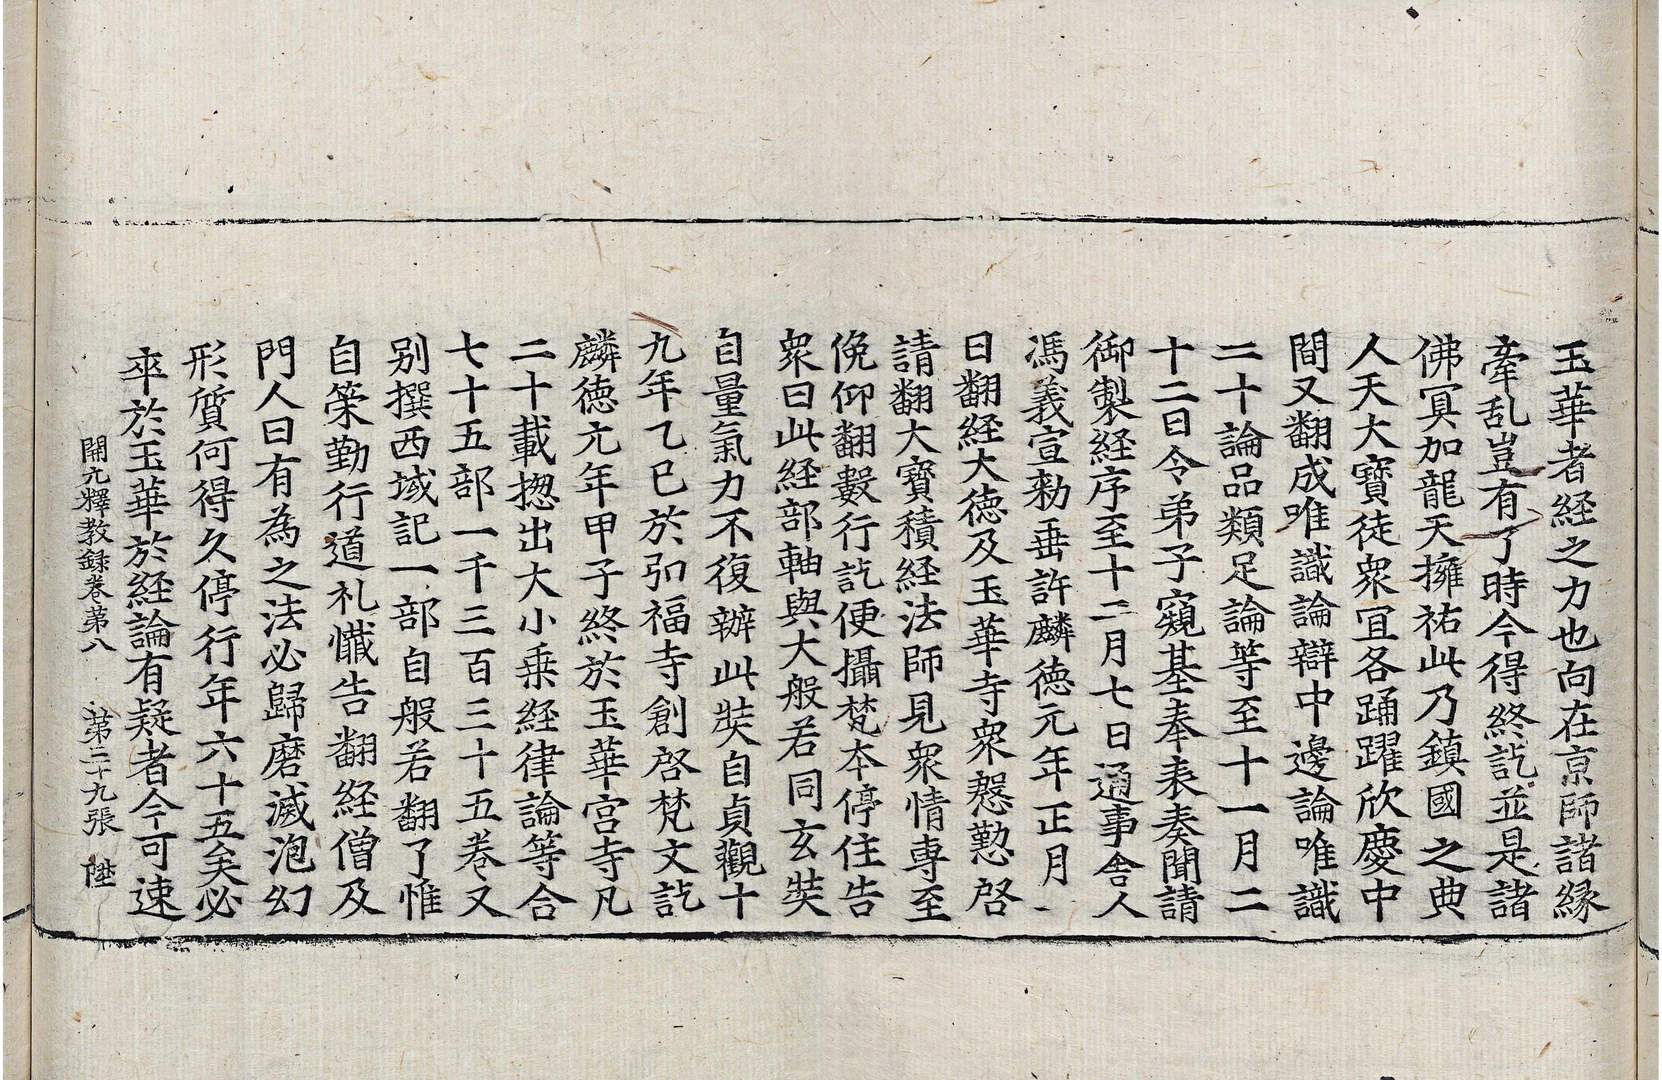 玉華者経之力也向在京師諸縁
牽乱豈有了時今得終訖並是諸
佛冥加龍天擁祐此乃鎮國之典
人天大寶徒衆冝各踊躍欣慶中
間又翻成唯識論辯中邊論唯識
二十論品類足論等至十一月二
十二日令弟子窺基奉表奏聞請
御製経序至十二月七日通事舎人
馮義宣勑垂許麟德元年正月一
日翻経大德及玉華寺衆慇懃啓
請翻大寶積経法師見衆情專至
俛仰翻數行訖便攝梵本停住告
衆曰此経部軸與大般若同玄奘
自量氣力不復辦此奘自貞觀十
九年乙巳於弘福寺創啓梵文訖
麟德元年甲子終於玉華宮寺凡
二十載揔出大小乗経律論等合
七十五部一千三百三十五巻又
别撰西域記一部自般若翻了惟
自䇿勤行道礼懺告翻経僧及
門人曰有為之法必歸磨滅泡幻
形質何得久停行年六十五矣必
卒於玉華於経論有疑者今可速
開元釋教録巻第八 第二十九張 陞